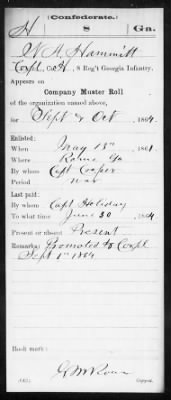 (Confederate.)
H 8 Ga.
Hammitt
Corpl, Co. H, 8 Reg't Georgia Infantry.
Appears on
Company Muster Roll
of the organization named above,
for Sept & Oct, 1864.
Enlisted:
When May 18", 1861.
Where Rome Ga
By whom Capt Cooper
Period war
Last paid:
By whom Capt Holiday
To what time June 30, 1864.
Present or absent Present
Remarks: Promoted to Corpl
Sept 1st 1864
Book mark:
(642) Copyist.